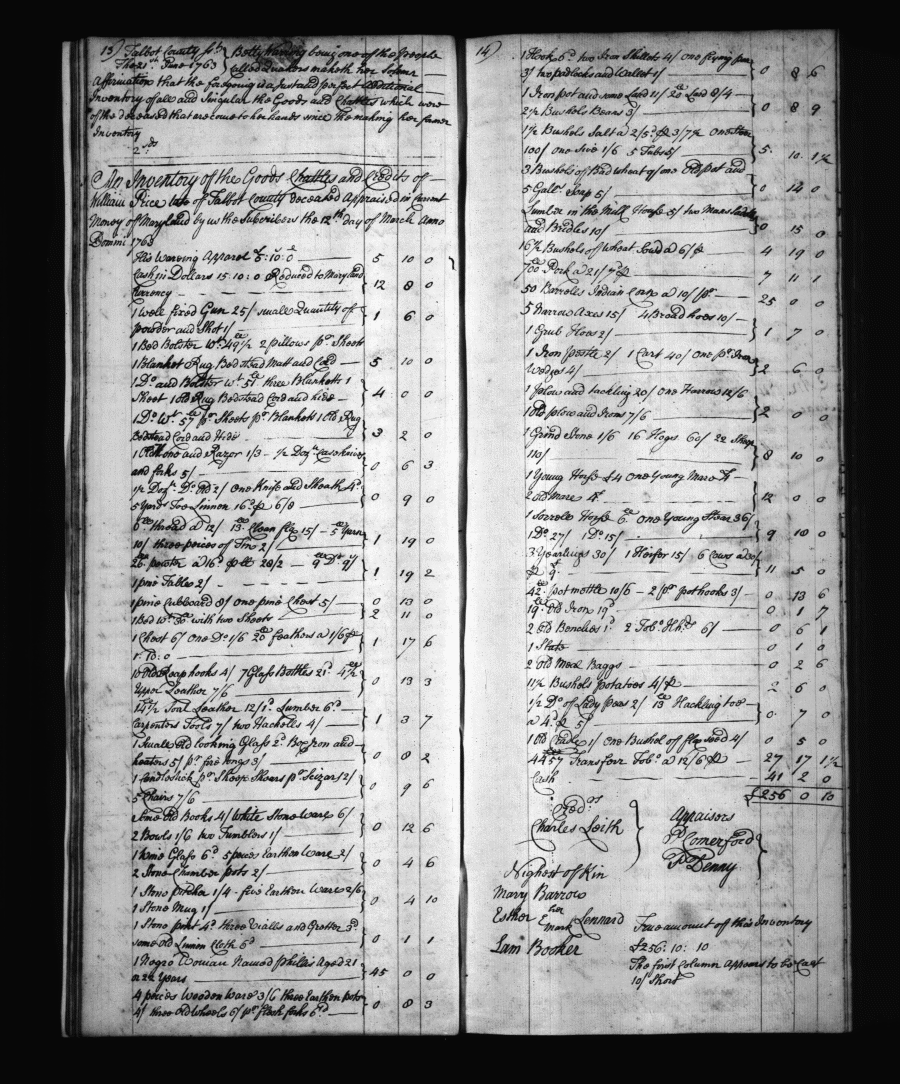 13) Talbot County Sct } Betty Harding being one of the People
The 21st June 1763 } called Quakers maketh her Solemn
Affirmation that the foregoing is a just and perfect additional
Inventory of all and Singular the Goods and Chattles which were
of the deceased that are come to her hands since the making her former
Inventory
An Inventory of the Goods Chattles and Credits of
William Price late of Talbot County deceased Appraised in Current
Money of Maryland by us the Subscribers the 12th day of March Anno
Domini 1763
His Waring Apparel £5:10:0 5 10 0
Cash in Dollars 15:10:0 Reduced to Maryland
Currency 12 8 0
1 Well fixed Gun 25/ small Quantity of
powder and Shot 1/ 1 6 0
1 Bed Bolster Wt 49½ 2 pillows pr Sheets
1 Blanket Rug Bedstead Matt and Cord 5 10 0
1 Do and Bolster Wt 51 three Blankets 1
Sheet 1 Old Rug Bedstead Cord and hide 4 0 0
1 Do Wt 57 pr Sheets pr Blankets 1 Old Rug
Bedstead Cord and Hide 3 2 0
1 Old Hone and Razor 1/3 - ½ Dozn Case knives
and forks 5/ 0 6 3
½ Dozn Do Old 2/ One Knife and Sheath 4d
5 Yards Toe Linnen 16d 6/8 0 9 0
6 thread a 12/ 13 Clean flax 15/ - 5 Yarn
10/ three peices of Tine 2/ 1 19 0
26 pewter a 16d 28/2 - 9 Do 9/
1 pine Table 2/ 1 19 2
1 pine Cubboard 8/ one pine Chest 5/ 0 13 0
1 Bed Wt with two Sheets 2 11 0
1 Chest 6/ One Do 1/6 20 feathers a 1/6
1:10:0 1 17 6
10 Old Reap hooks 4/ 7 Glass Bottles 21d 4½
Upper Leather 7/6 0 13 3
14½ Soal Leather 12/1d Lumber 6d
Carpenters Tools 7/ two Hackells 4/ 1 3 7
1 Small Old looking Glass 2d Box Iron and
heaters 5/ pr fire tongs 3/ 0 8 2
1 Candlestick pr Sheep Shears pr Scizars 2/
5 Chairs 7/6 0 9 6
Some Old Books 4/ White Stone Ware 6/
2 Bowls 1/6 two Tumblers 1/ 0 12 6
1 Wine Glass 6d 5 peices Earthen Ware 2/
2 Stone Chamber pots 2/ 0 4 6
1 Stone pitcher 1/4 - five Earthen Ware 2/6
1 Stone Mug 1/ 0 4 10
1 Stone pint 4d three Vialls and Grater 3d
some old Linnen Cloth 6d 0 1 1
1 Negro Woman Named phillis Aged 21
or 22 Years 45 0 0
4 peices Wooden Ware 3/6 three Earthen pots
4/ three Old Wheels 6/ flesh forks 6d 0 8 3
14)
1 Hook 6d two Iron Skillets 4/ one frying pan
3/ two padlocks and Wallet 1/ 0 8 6
1 Iron pot and some Lard 11/ 20 Lard 8/4
2½ Bushels Beans 3/ 0 8 9
1½ Bushels Salt a 2/5d 3/7½ One
100/ one Sive 1/6 5 Tubs 5/ 5 10 1½
3 Bushels of Bad wheat 9/ one Old pot and
5 Galls Soap 5/ 0 14 0
Lumber in the Mill House 5/ two Mans Saddles
and Bridles 10/ 0 15 0
16½ Bushels of Wheat Sow'd a 6/ 4 19 0
700 Pork a 21/7 7 11 1
50 Barrells Indian Corn a 10/ pr 25 0 0
5 Narrow Axes 15/ 4 Broad hoes 10/
1 Grub Hoes 2/ 1 7 0
1 Iron pestle 2/ 1 Cart 40/ One pr Iron
Wedges 4/ 2 6 0
1 plow and tackling 20/ One Harrow 12/6
1 Old plow and Irons 7/6 2 0 0
1 Grind Stone 1/6 16 Hogs 60/ 22 Sheep
110/ 8 10 0
1 Young Horse £4 One Young Mare £4
2 Old Mare 4£ 12 0 0
1 Sorrele Horse 6£ One Young Steer 36/
1 Do 27/ 1 Do 15/ 9 18 0
3 Yearlings 30/ 1 Heifer 15/ 6 Cows a 30/
9£ 11 5 0
42 pot mettle 10/6 - 2 pr pothooks 3/ 0 13 6
19 Old Iron 19d 0 1 7
2 Old Benches 1d 2 Tobo Hhds 6/ 0 6 1
1 Slate 0 1 0
2 Old Meal Baggs 0 2 6
11½ Bushels potatoes 4/ 2 6 0
½ Do of Lady peas 2/ 13 Hackling toe
a 4d 5/ 0 7 0
1 Old Cask 1/ One Bushel of flax seed 4/ 0 5 0
4457 Transferr Tobo a 12/6 27 17 1½
Cash 41 2 0
£256 0 10
Credrs
Charles Leith
Appraisers
P Comerford
P Denny
Nighest of Kin
Marry Barrow
Esther E her mark Lennard
Lam Booker
True amount of this Inventory
£256:10:10
The first Column Appears to be Cast
10/ Short